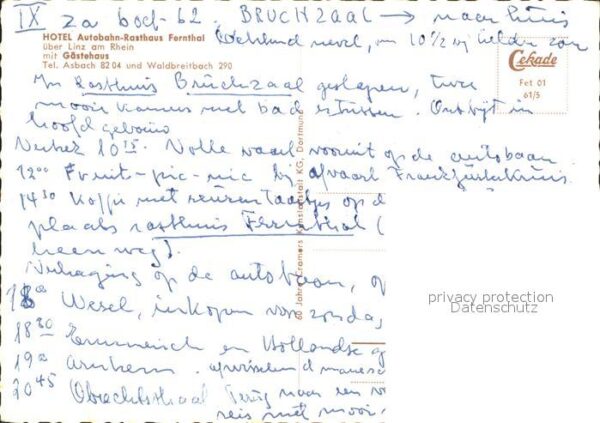 IX za 6 oct-62. BRUCHZAAL → naar huis
HOTEL Autobahn-Rasthaus Fernthal
über Linz am Rhein
mit Gästehaus
Tel. Asbach 8204 und Waldbreitbach 290
Ochtend nevel, 10½ helder zon
Cekade
Fet 01
61/5
In Rasthuis Bruchzaal geslapen, twee
mooie kamers met bad ertussen. Ontbijt in
hoofd gebouw
Vertrek 10 15. Volle vaart vooruit op de autobaan
12 00 Fruit-pic-nic bij afvaart Frankfurterkruis.
14 30 Koffie met taartjes op d
plaats rasthuis Fernthal (
heenweg).
Vertraging op de autobaan, op
Wesel, inkopen voor zondag
18 30 Emmerich en Hollandse g
19 00 Arnhem.
20 45 Obrechtstraat Terug naar een
reis met mooi
60 Jahre Cramers Kunstanstalt KG, Dortmund
privacy protection
Datenschutz